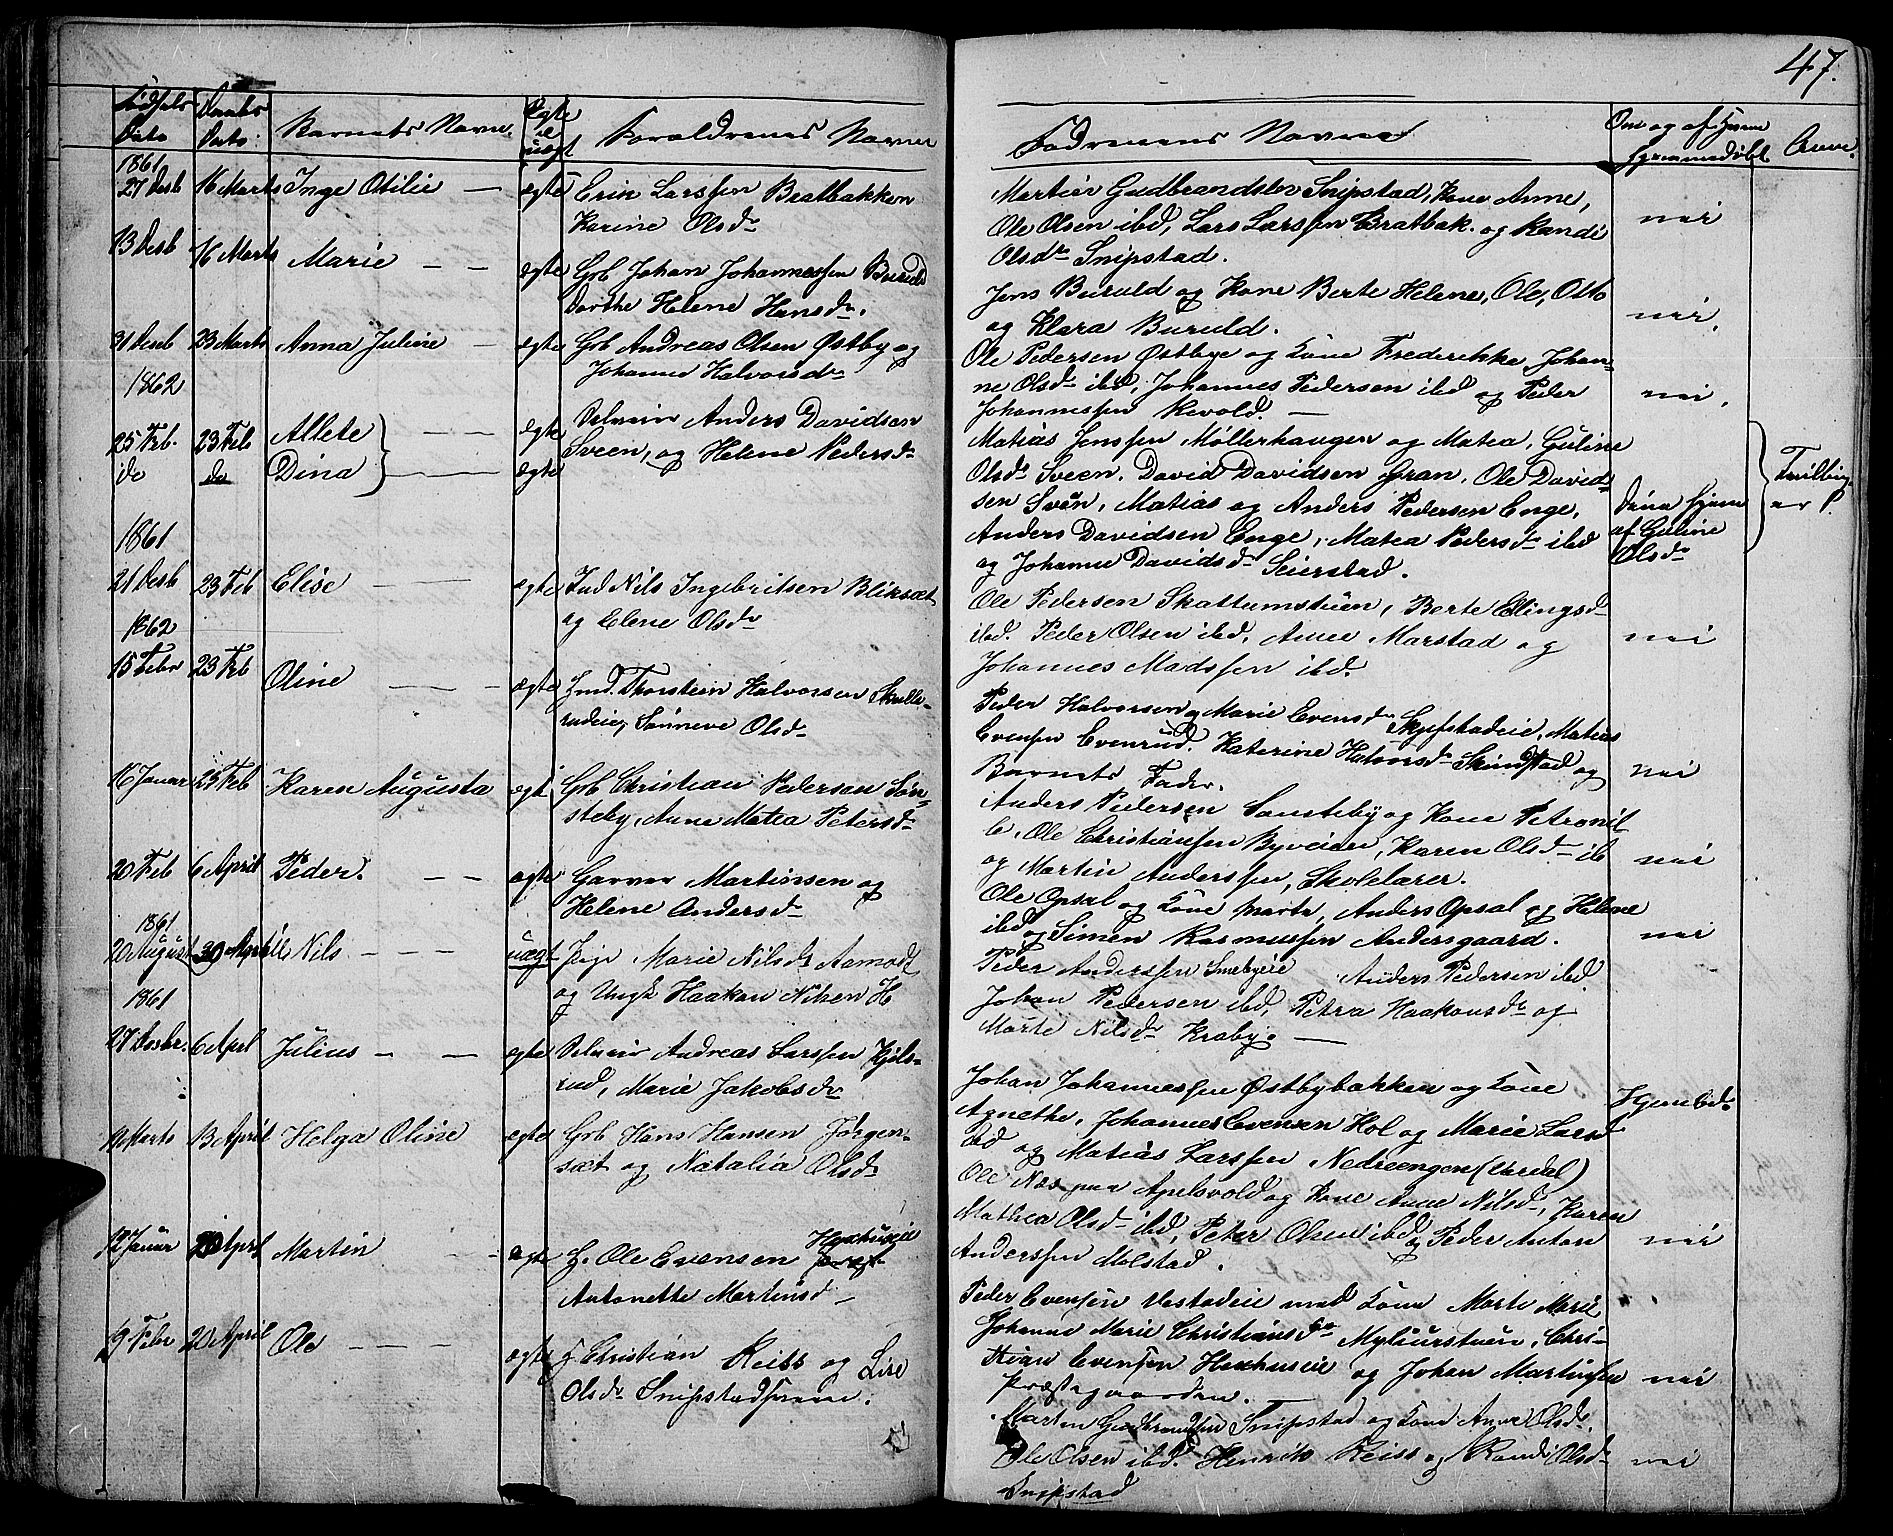 47.
Fødsels Dato
Daabs Dato.
Barnets Navne.
Ægte el uægt
Forældrenes Navne
Faddrenes Navne
Om og af hvem hjemmedøbt
Anm.
1861
27 Desb 16 Marts Inge Otilie — ægte Erin Larssen Bratbakken
Karine Olsdr
Martin Gudbrandsen Snipstad, Kone Anne,
Ole Olsen ibd, Lars Larssen Bratbak. og Randi
Olsdr Snipstad.
nei
13 Desb 16 Marts Marie — — ægte Grb Johan Johannessen Buruld
Dorthe Helene Hansdr.
Jens Buruld og Kone Berte Helene, Ole, Otto
og Klara Buruld.
nei.
31 Desb 23 Marts Anna Juline — ægte Grb Andreas Olsen Østby og
Johanne Halvorsdr
Ole Pedersen Østbye og Kone Frederikke, Johan-
ne Olsdr ibd, Johannes Pedersen ibd og Peder
Johannessen Kevold. —
nei.
1862
25 Feb. 23 Feb Allete — — ægte Selveier Anders Davidsen
do do Dina — ægte Sveen, og Helene Pedersdr
Matias Jenssen Møllerhaugen og Matea, Guline
Olsdr Sveen. David Davidsen Gran. Ole David-
sen Svén, Matias og Anders Pedersen Enge,
Anders Davidsen Enge, Matea Pedersdr ibd
og Johanne Davidsdr Seierstad.
Dina hjem
af Guline
Olsdr
Tvilling-
er P.
1861
21 Desb 23 Feb Elise — — ægte Ind Nils Ingebritsen Bliksæt
og Elene Olsdr
Ole Pedersen Skattumstuen, Berte Ellingsd
ibd. Peder Olsen ibd, Anne Marstad og
Johannes Madssen ibd.
nei
1862
15 Febr 23 Feb Oline — — — ægte Hmd. Thorstein Halvorsen Skulle-
rudeie, Sønneve Olsdr
Peder Halvorsen og Marie Evensdr Skjefstadeie, Matias
Evensen Evenrud. Katerine Halvorsdr Skindstad og
Barnets Fader.
nei
16 Januar 23 Feb Karen Augusta ægt Grb Christian Pedersen Søn-
steby, Anne Matea Petersdr
Anders Pedersen Sønsteby og Kone Petronil-
le, Ole Christiansen Byveien, Karen Olsdr ib
og Martin Anderssen, Skolelærer.
nei
20 Feb 6 April Peder. — — ægte Garver Martinsen og
Helene Andersdr
Ole Opsal og Kone Marte, Anders Opsal og Helene
ibd og Simen Rasmussen Andersgaard.
nei
1861
20 August 30 April Nils — — — uægt Pige Marie Nilsdr Aamodt
og Ungk Haakon Nilsen H
Peder Anderssen Smebyeie Anders Pedersen ibd.
Johan Pedersen ibd, Petra Haakonsdr og
Marte Nilsdr Kraby. —
1861
27 Desbr. 6 Aprl Julius — — ægte Selveier Andreas Larssen Kjøls-
rud, Marie Jakobsdr
Johan Johannessen Østbybakken og Kone
Agnethe, Johannes Evensen Hol og Marie Larsd
ibd og Matias Larssen Nedreengen (Vardal)
Hjembd.
11 Marts 13 April Helga Oline ægte Grb Hans Hansen Jørgen-
sæt og Natalia Olsdr
Ole Næs paa Apelsvold og Kone Anne Nilsdr, Karen
Mathea Olsdr ibd, Peter Olsen ibd og Peder Anton
Anderssen Molstad.
nei
12 Januar 20 Aprl Martin — — ægte H. Ole Evensen Haxhuseie
Antonette Martinsd —
Peder Evensen Vestadeie med Kone Marte Marie
Johanne Marie Christiansdr Myliurstuen, Chri-
stian Evensen Haxhuseie og Johan Martinsen
Præstegaarden.
nei
19 Febr 20 April Ole — — — ægte H. Christian Reiss og Lise
Olsdr Snipstadfram.
Martin Gudbrandsen Snipstad og Kone Anne Olsdr.
Ole Olsen ibd. Henrik Reiss og Randi Olsdr
Snipstad
nei